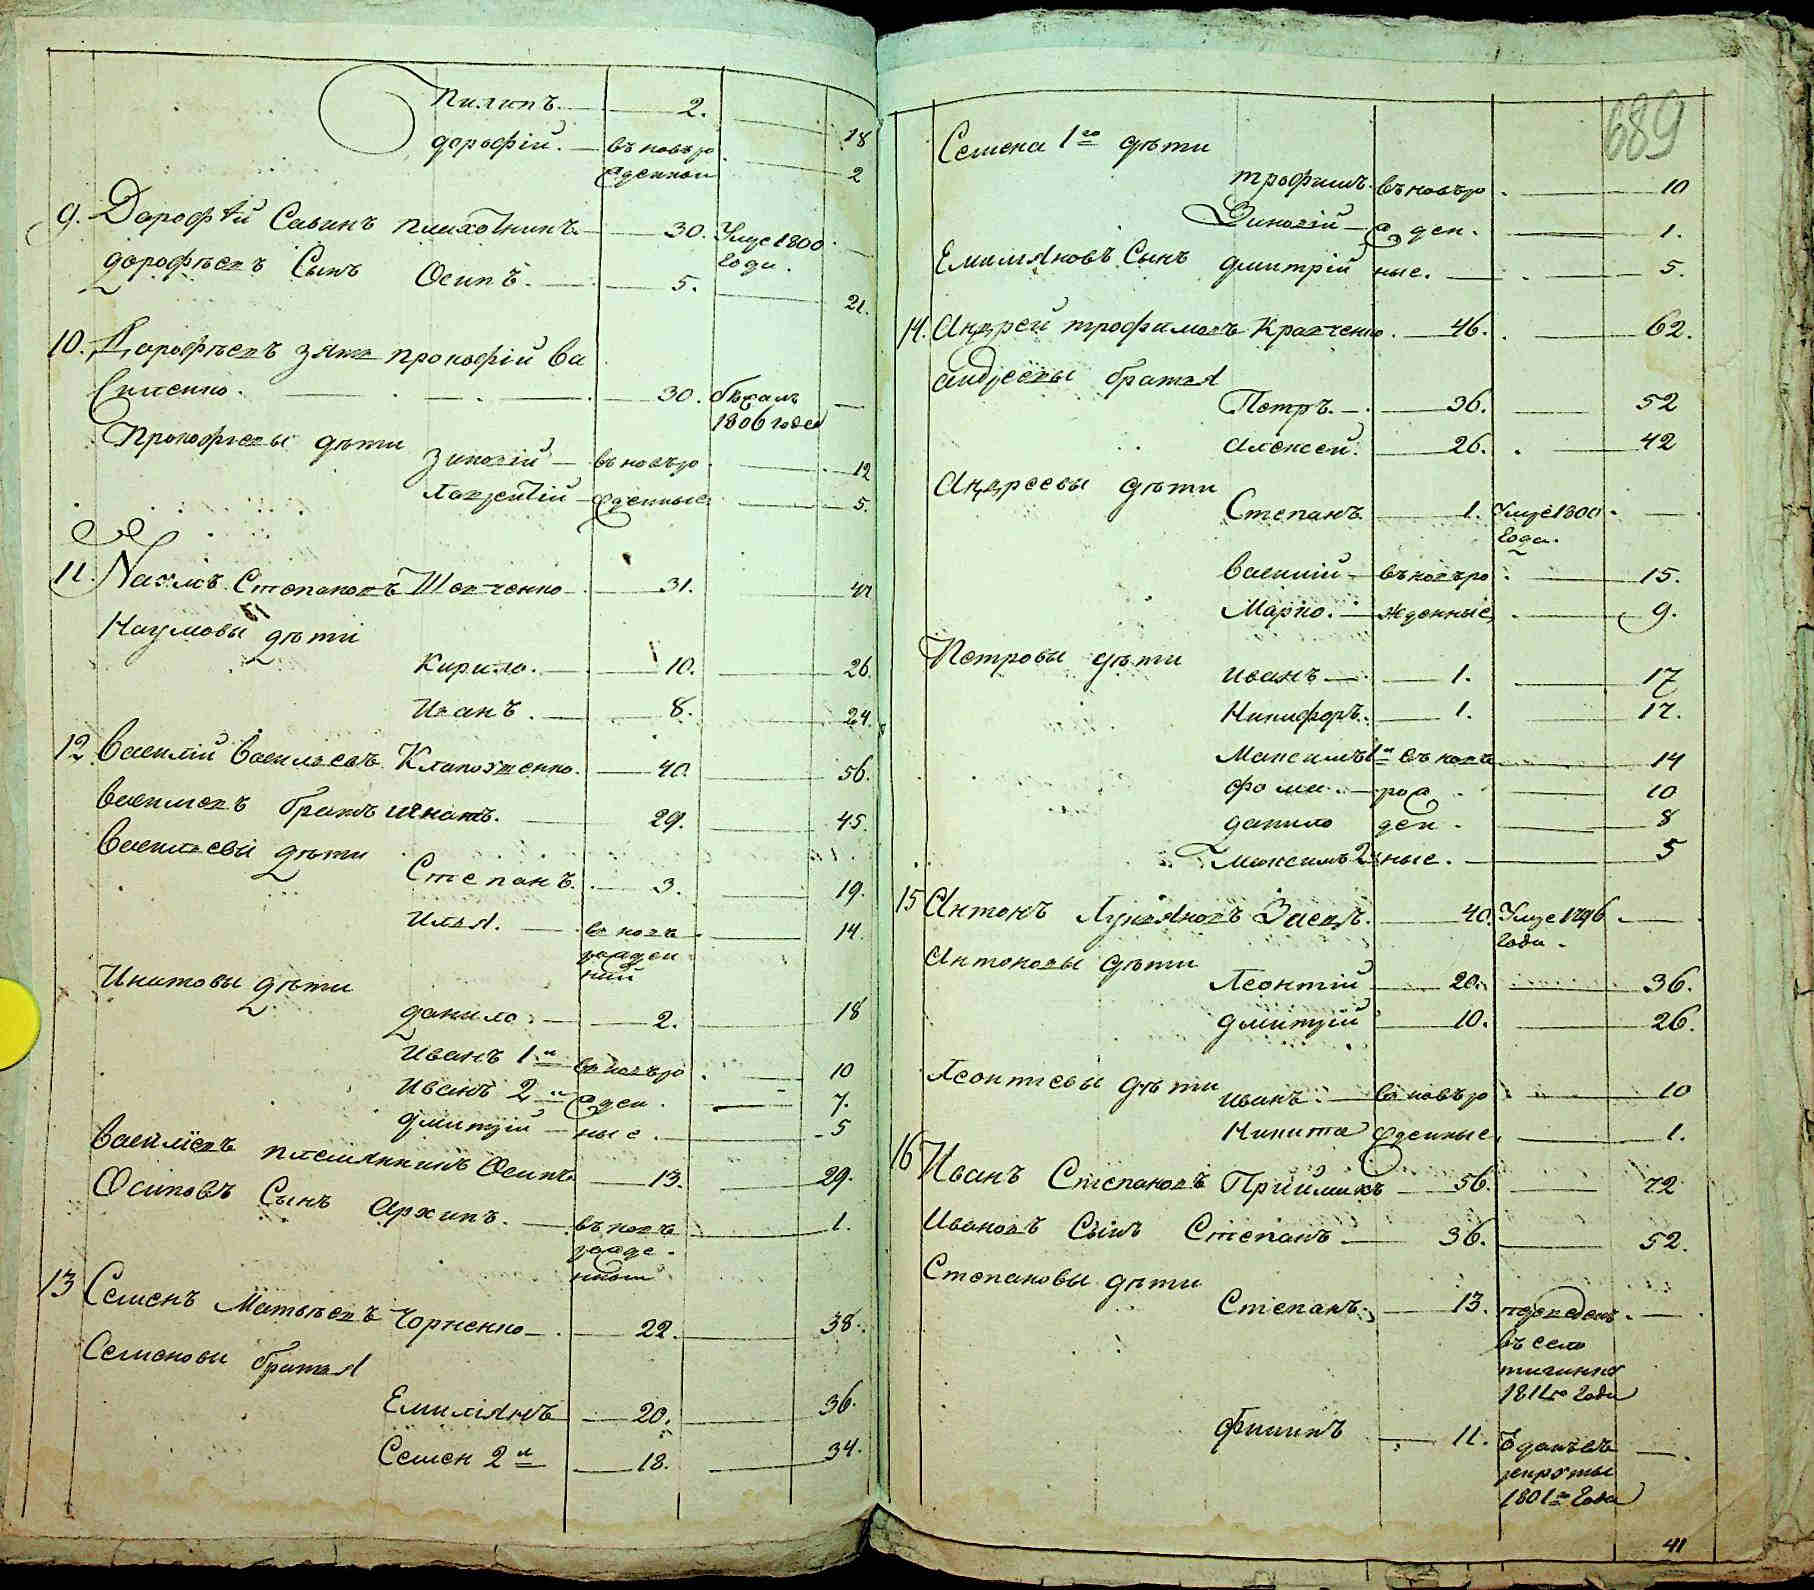 Пилипъ. 2. 18
дорофій. въ новъро
жденный 2
9. Дорофѣй Савинъ 30. Умре 1800
года.
дорофѣевъ Сынъ Осипъ. 5. 21.
10. Дорофѣевъ зять прокофій Ва
силенко. 30. бѣжалъ
1806 года
Прокофьевы дѣти
Зиновій въ новъро 12
Лаврентій жденные 5.
11. Наумъ Степановъ Шевченко 31. 47
Наумовы дѣти
Кирило. 10. 26.
Иванъ. 8. 24.
12. Василій Васильевъ 40. 56.
Васильевъ братъ Игнатъ. 29. 45.
Васильевы дѣти
Степанъ. 3. 19.
Илья. въ новъ 14.
рожден
ный
Игнатовы дѣти
данило 2. 18
Иванъ 1й въ новъро 10
Иванъ 2й жден. 7.
дмитрій ные. 5
Васильевъ племянникъ Осипъ 13. 29.
Осиповъ Сынъ Архипъ. въ новъ 1.
рожде
нный
13 Семенъ Матвѣевъ Чорненко 22. 38.
Семеновы братья
Емиліянъ 20. 36.
Семен 2й 18. 34.
689
Семена 1го дѣти
трофимъ. въ новъро 10
Зиновій жден. 1.
Емиліяновъ Сынъ дмитрій ные. 5.
14. Андрей трофимовъ Кравченко. 46. 62.
андреевы братья
Петръ. 36. 52
алексей. 26. 42
Андреевы дѣти
Степанъ 1. Умре 1800
года.
Василій въ новъро 15.
Марко. жденные 9.
Петровы дѣти
Иванъ 1. 17
Никифоръ. 1. 17.
Максимъ 1й въ новъ 14
фома. рож 10
данило ден. 8
Максимъ 2й ные. 5
15 Антонъ Лукьяновъ Заецъ. 40. Умре 1796
года.
Антоновы дѣти
Леонтій 20. 36.
дмитрій 10. 26.
Леонтіевы дѣти
Иванъ. въ новъро 10
Никита жденные. 1.
16 Иванъ Степановъ Приймакъ 56. 72
Ивановъ Сынъ Степанъ 36. 52.
Степановы дѣти
Степанъ. 13.
въ село
1811го года
филипъ 11. Зданъ въ
рекруты
1801го года
41